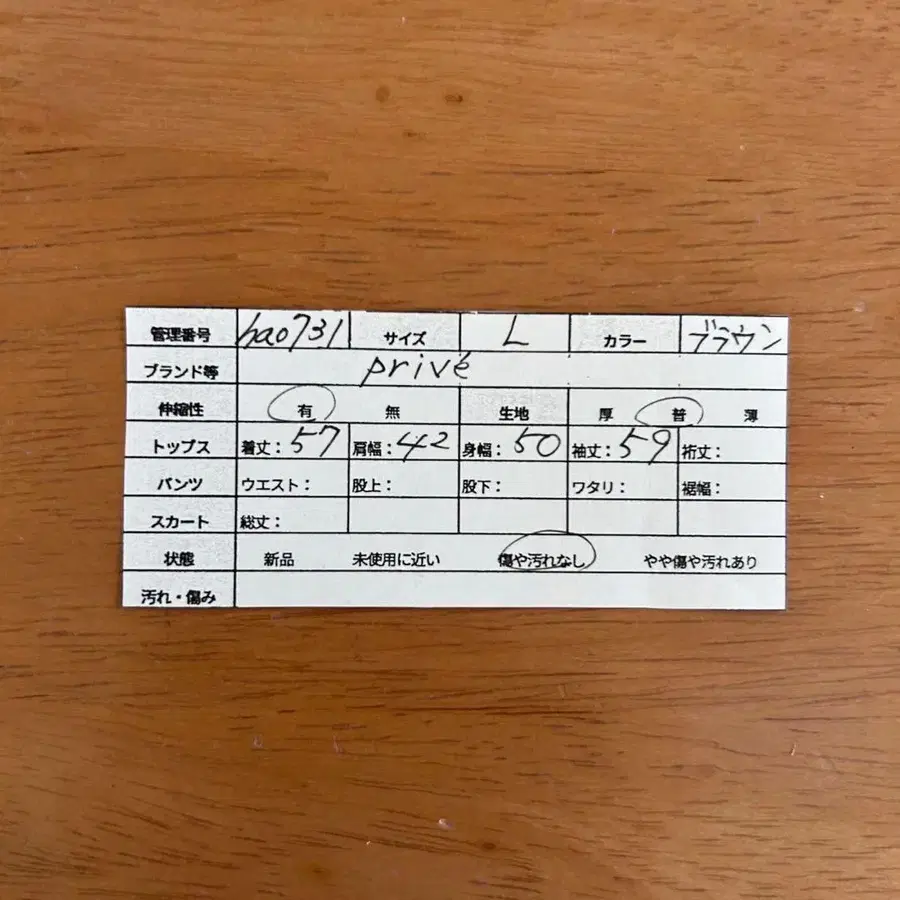 管理番号 hao731 サイズ L カラー ブラウン
ブランド等 privé
伸縮性 有 無 生地 厚 普 薄
トップス 着丈：57 肩幅：42 身幅：50 袖丈：59 裄丈：
パンツ ウエスト： 股上： 股下： ワタリ： 裾幅：
スカート 総丈：
状態 新品 未使用に近い 傷や汚れなし やや傷や汚れあり
汚れ・傷み